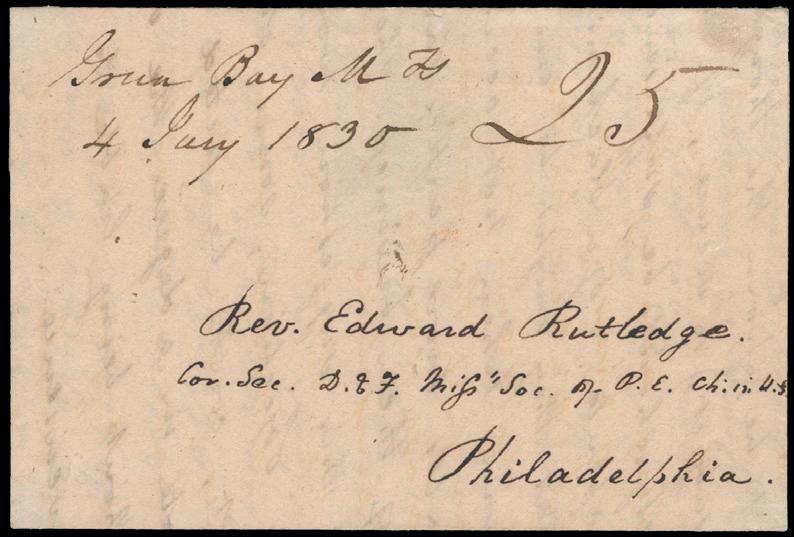 Green Bay M Ty 25
4 Jany 1830
Rev. Edward Rutledge.
Cor. Sec. D. & F. Miss" Soc. of P. E. Ch. in U.S
Philadelphia.